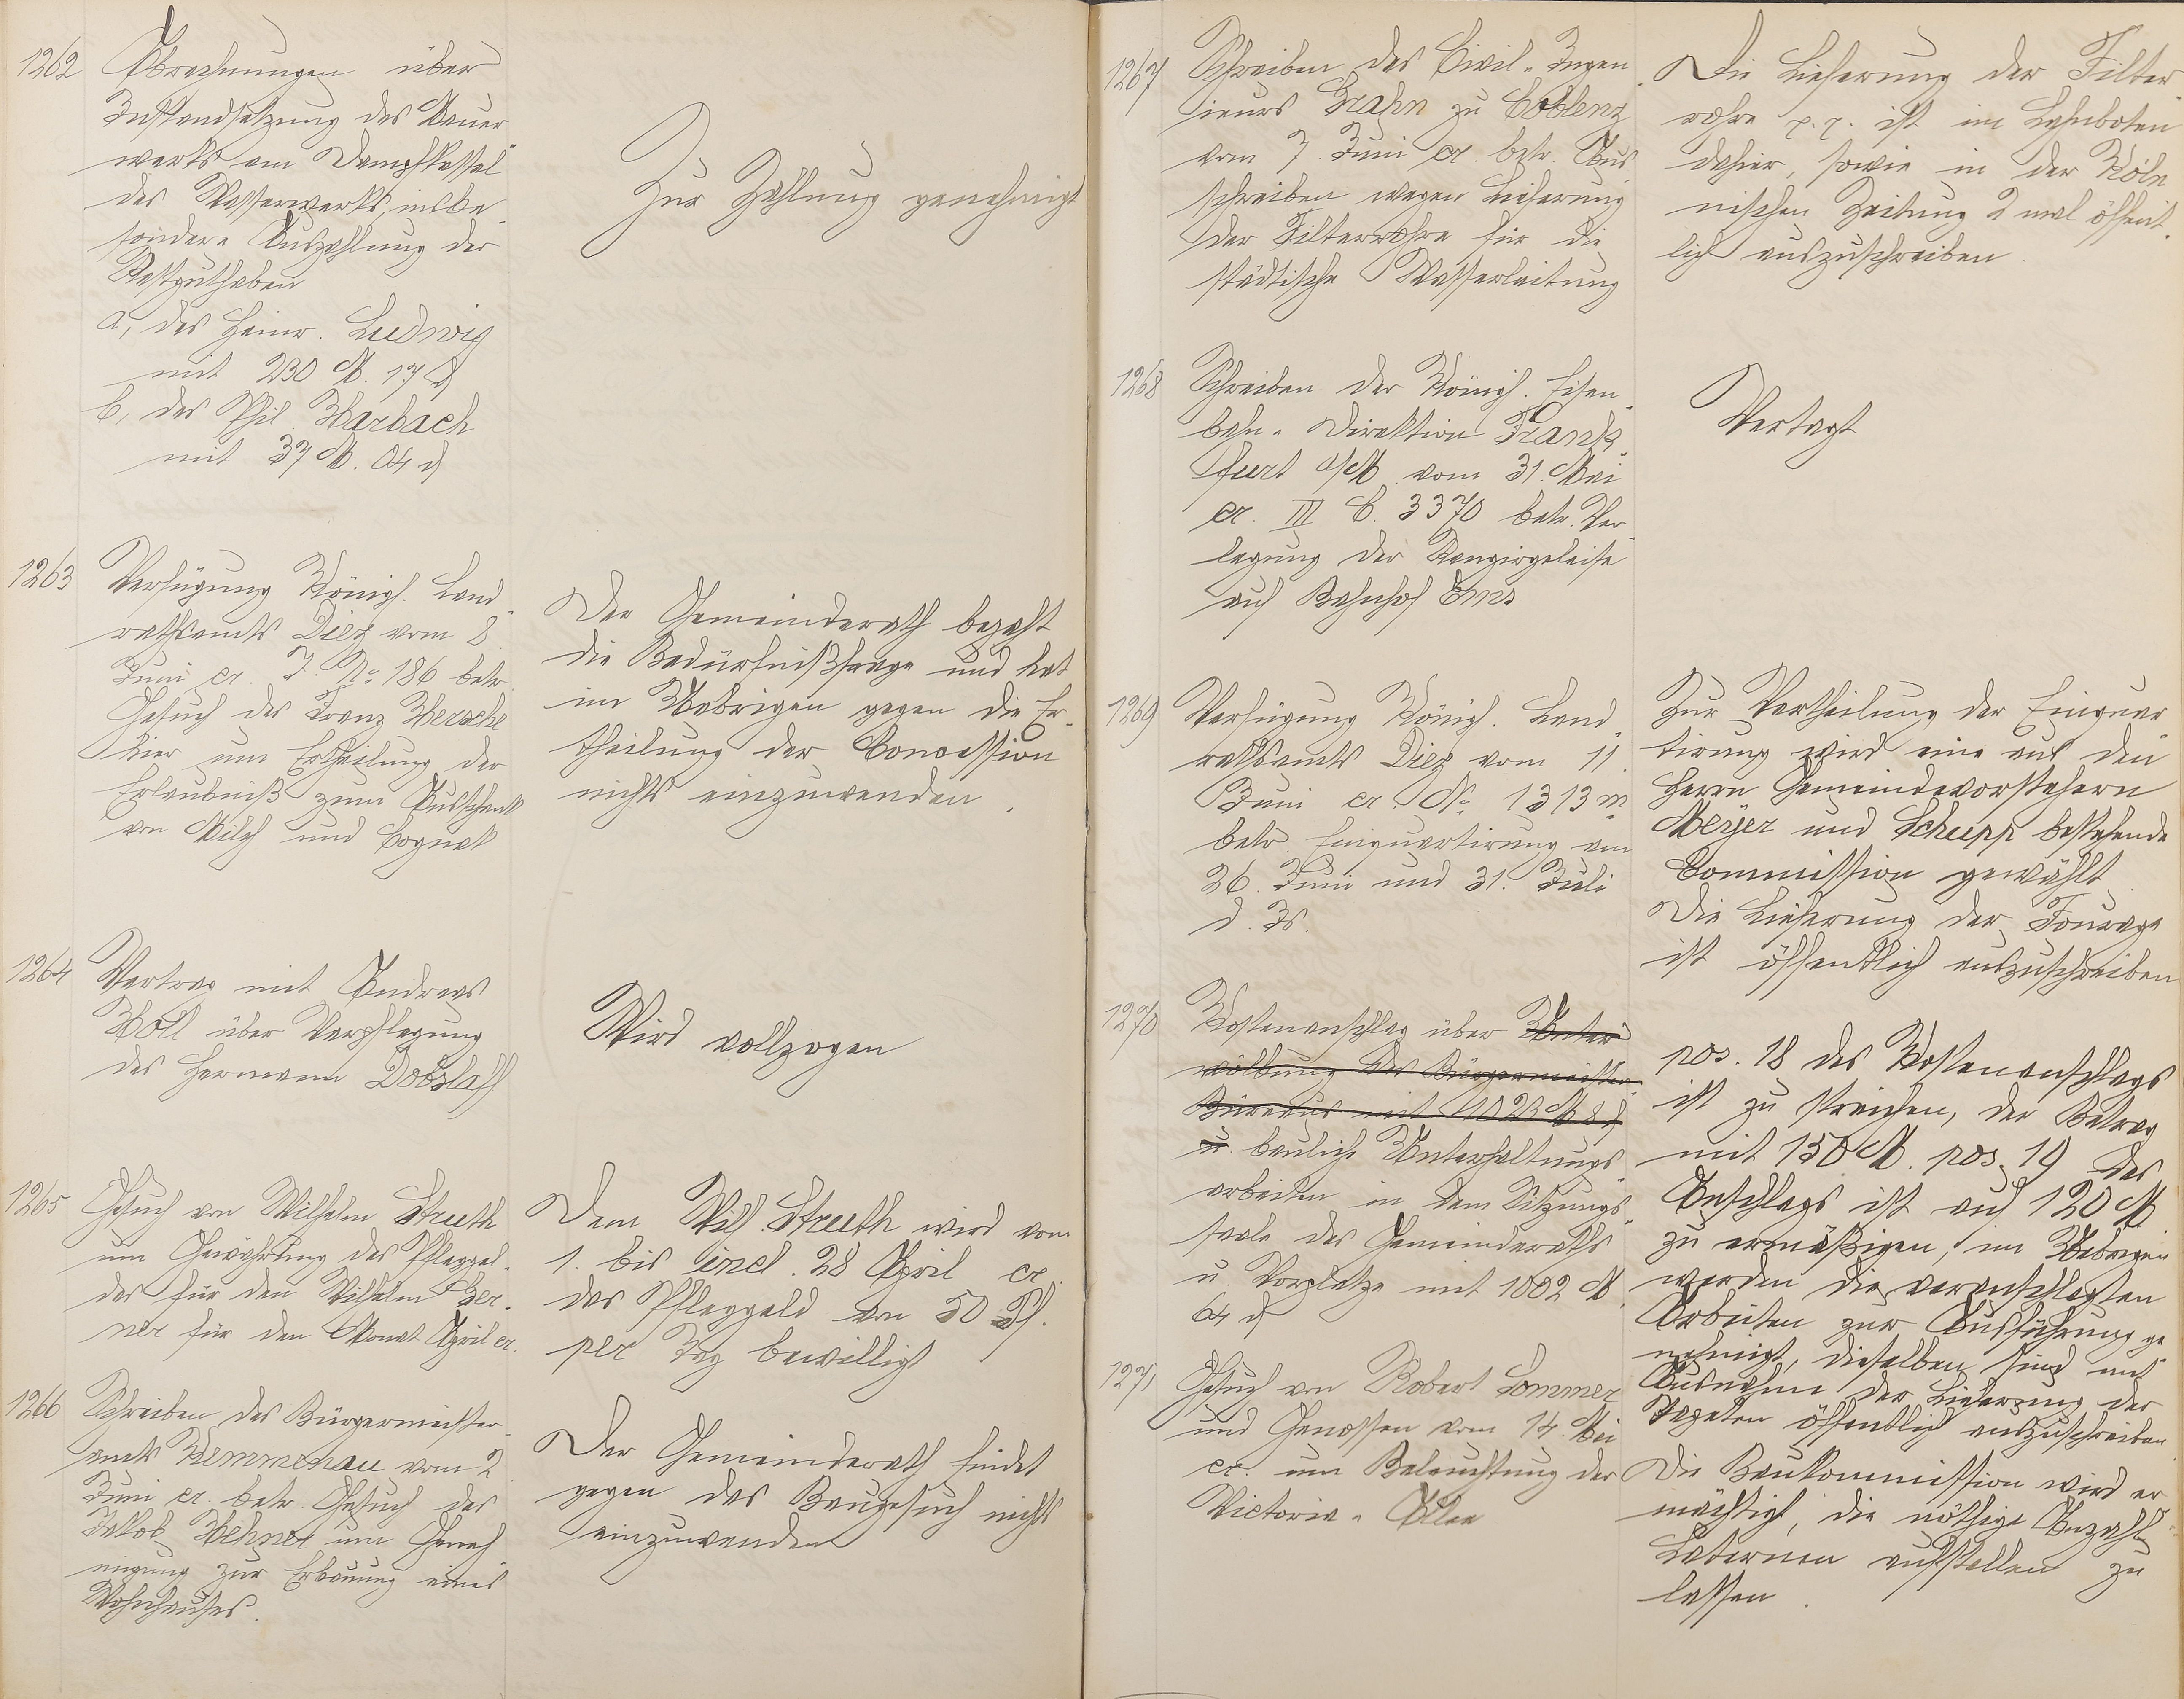 1262
Abrechnungen über
Instandsetzung des Mauer-
werks am Dampfkessel
des Wasserwerks, insbe-
sondere Auszahlung der
Restguthaben
a, des Heinr. Ludwig
mit 230 M. 17 d
b, des Phil. Harbach
mit 37 M. 04 d
Zur Zahlung genehmigt
1263
Verfügung Königl. Land-
rathsamts Diez vom 8.
Juni cr. J. No 186 betr.
Gesuch des Franz Hersche
hier um Ertheilung der
Erlaubniß zum Ausschank
von Milch und Cognak
Der Gemeinderath bejaht
die Bedürfnißfrage und hat
im Uebrigen gegen die Er-
theilung der Concession
nichts einzuwenden.
1264
Vertrag mit Andreas
Böll über Verpflegung
des Hermann Dobslaff
Wird vollzogen
1265
Gesuch von Wilhelm Struth
um Gewährung des Pflegegel-
des für den Wilhelm Ber-
ner für den Monat April cr.
Dem Wilh. Struth wird vom
1. bis incl. 28 April cr.
das Pflegegeld von 50 Pf.
per Tag bewilligt
1266
Schreiben des Bürgermeister-
amts Kemmenau vom 2
Juni cr. betr. Gesuch des
Jakob Wehner um Geneh-
migung zur Erbauung eines
Wohnhauses.
Der Gemeinderath findet
gegen das Baugesuch nichts
einzuwenden
1267
Schreiben des Civil-Ingen-
ieurs Grahn zu Coblenz
vom 7. Juni cr. betr. Aus-
schreiben wegen Lieferung
der Filterrohre für die
städtische Wasserleitung
Die Lieferung der Filter-
rohre p.p. ist im Lahnboten
dahier, sowie in der Köln-
nischen Zeitung 2 mal öffent-
lich auszuschreiben.
1268
Schreiben der Königl. Eisen-
bahn-Direktion Frank-
furt a/M vom 31. Mai
cr. III C. 3370 betr. Ver-
legung der Rangirgeleise
auf Bahnhof Ems
Vertagt
1269
Verfügung Königl. Land-
rathsamts Diez vom 11.
Juni cr. No 1313 m
betr. Einquartirung am
26. Juni und 31. Juli
d. Js.
Zur Vertheilung der Einquar-
tirung wird eine aus den
Herrn Gemeindevorstehern
Meyer und Schupp bestehende
Commission gewählt.
Die Lieferung der Fourage
ist öffentlich auszuschreiben
1270
Kostenanschlag über Unter-
wölbung des Bürgermeister-
Büreaus mit
u. bauliche Unterhaltungs-
arbeiten in dem Sitzungs-
saale des Gemeinderaths
u. Vorplatze mit 1002 M.
04 d
pos. 18 des Kostenanschlags
ist zu streichen, der Betrag
mit 150 M. pos. 19 des
Anschlags ist auf 120 M
zu ermäßigen, im Uebrigen
werden die veranschlagten
Arbeiten zur Ausführung ge-
nehmigt, dieselben sind mit
Ausnahme der Lieferung der
Tapeten öffentlich auszuschreiben
1271
Gesuch von Robert Sommer
und Genossen vom 14. Mai
cr. um Beleuchtung der
Victoria-Allee
Die Baukommission wird er-
mächtigt, die nöthige Anzahl
Laternen aufstellen zu
lassen.